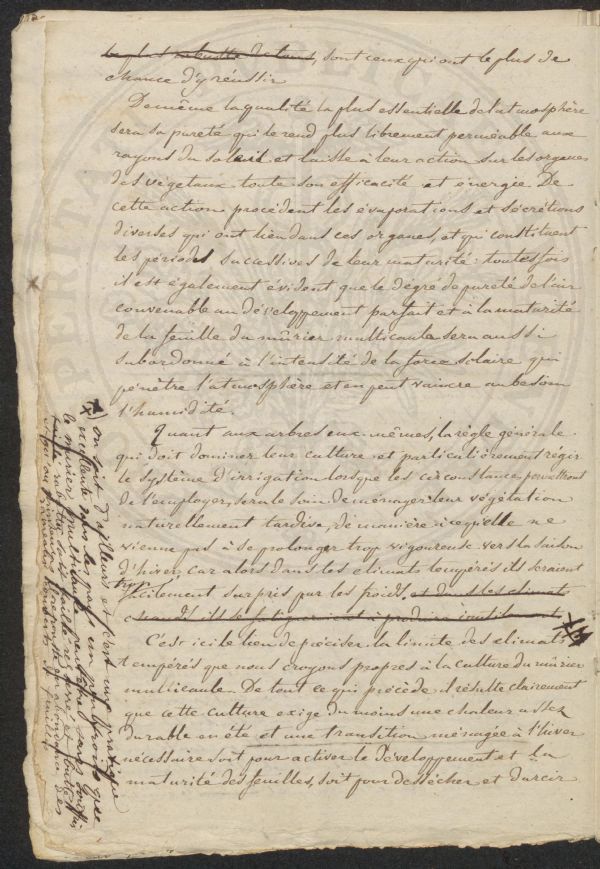 le plus robuste de tous, sont ceux qui ont le plus de
chance d'y réussir
De même la qualité la plus essentielle de l'atmosphère
sera sa pureté qui le rend plus librement perméable aux
rayons du soleil et laisse à leur action sur les organes
des végétaux toute son efficacité et énergie De
cette action procèdent les évaporations et sécrétions
diverses qui ont lieu dans ces organes, et qui constituent
les périodes successives de leur maturité: toutes fois
il est également évident que le dégré de pureté de l'air
convenable au développement parfait et à la maturité
de la feuille du mûrier multicaule sera aussi
subordonné à l'intensité de la force solaire qui
pénètre l'atmosphère et en peut vaincre au besoin
l'humidité.
Quant aux arbres eux-mêmes, la règle générale
qui doit dominer leur culture et particulièrement régir
le système d'irrigation lorsque les circonstances permettront
de l'employer, sera le soin de ménager leur végétation
naturellement tardive, de manière à ce qu'elle ne
vienne pas à se prolonger trop vigoureuse vers la saison
d'hiver, car alors dans les climats tempérés ils seraient
trop facilement surpris par les froids. et dans les climats
chauds ils se
C'est ici le lieu de préciser la limite des climats
tempérés que nous croyons propres à la culture du mûrier
multicaule. De tout ce qui précède il résulte clairement
que cette culture exige du moins une chaleur assez
durable en été et une transition ménagée à l'hiver
nécessaire soit pour activer le développement et la
maturité des feuilles, soit pour dessécher et durcir
on sait d'ailleurs et c'est une pratique
excellente dans les pays un peu froids que
le mûrier multicaule peut être sans